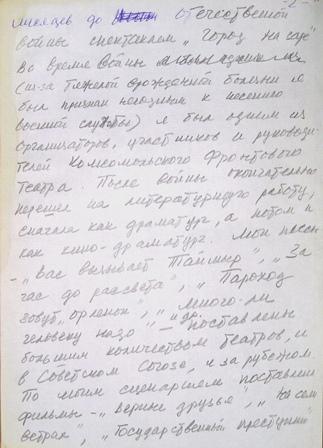 - 2 -
месяцев до Отечественной
войны спектаклем „Город на заре"
Во время войны
(из-за тяжелой врожденной болезни я
был признан негодным к несению
военной службы) я был одним из
организаторов, участников и руководи-
телей Комсомольского Фронтового
Театра. После войны окончательно
перешел на литературную работу,
сначала как драматург, а потом и
как кино-драматург. Мои пьесы
- „Вас вызывает Таймыр", „За
час до рассвета", „Пароход
зовут „Орленок", „Много-ли
человеку надо" и др. – поставлены
большим количеством театров, и
в Советском Союзе, и за рубежом.
По моим сценариям поставлены
фильмы – „Верные друзья", „На семи
ветрах", „Государственный преступник"